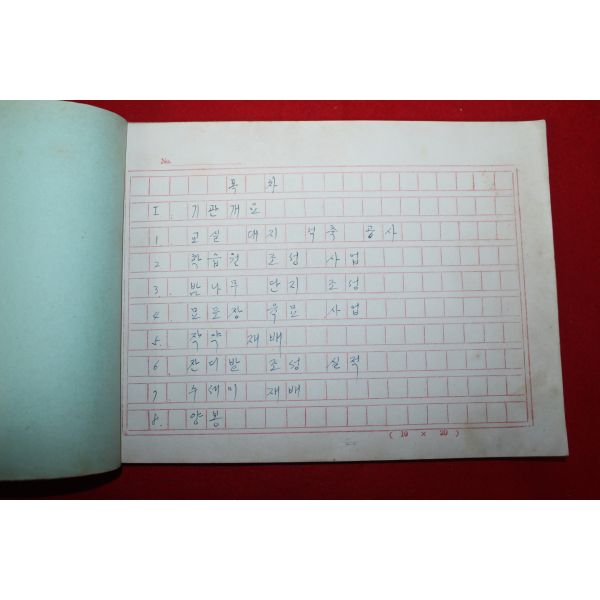 No.
목 차
I. 기관개요
1. 교실 대지 석축 공사
2 학습원 조성 사업
3. 밤나무 단지 조성
4 묘를장 육묘 사업
5. 작약 재배
6. 잔디밭 조성 실적
7. 수세미 재배
8. 양봉
( 10 × 20 )